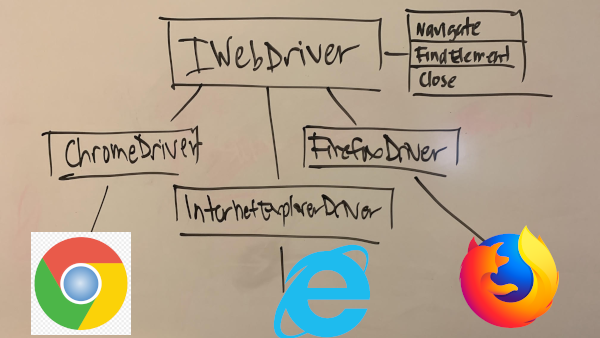 IWebDriver
Navigate
FindElement
Close
ChromeDriver
FirefoxDriver
InternetExplorerDriver